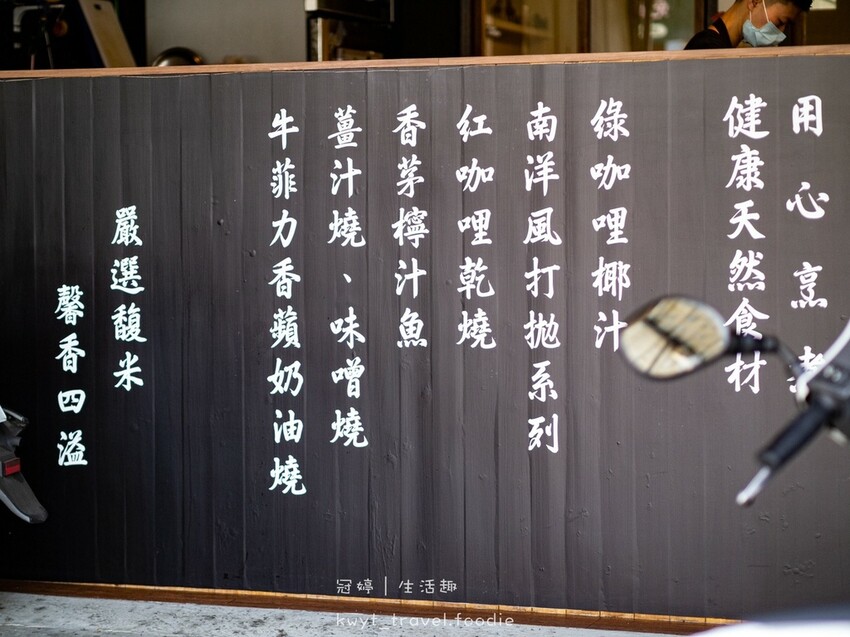 用心烹
健康天然食材
綠咖哩椰汁
南洋風打拋系列
紅咖哩乾燒
香茅檸汁魚
薑汁燒、味噌燒
牛菲力香蘋奶油燒
嚴選馥米
馨香四溢
冠婷｜生活趣
kwyt_travel.foodie